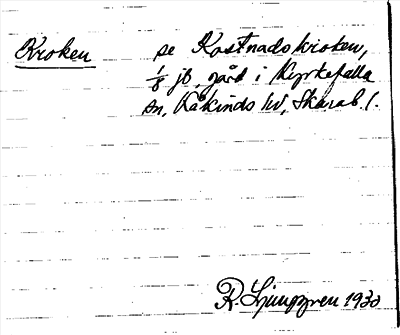 Kroken se Kostnadskroken,
1/8 jb, gård i Kyrkefalla
sn, Kåkinds hd, Skarab. l.
R. Ljunggren 1930